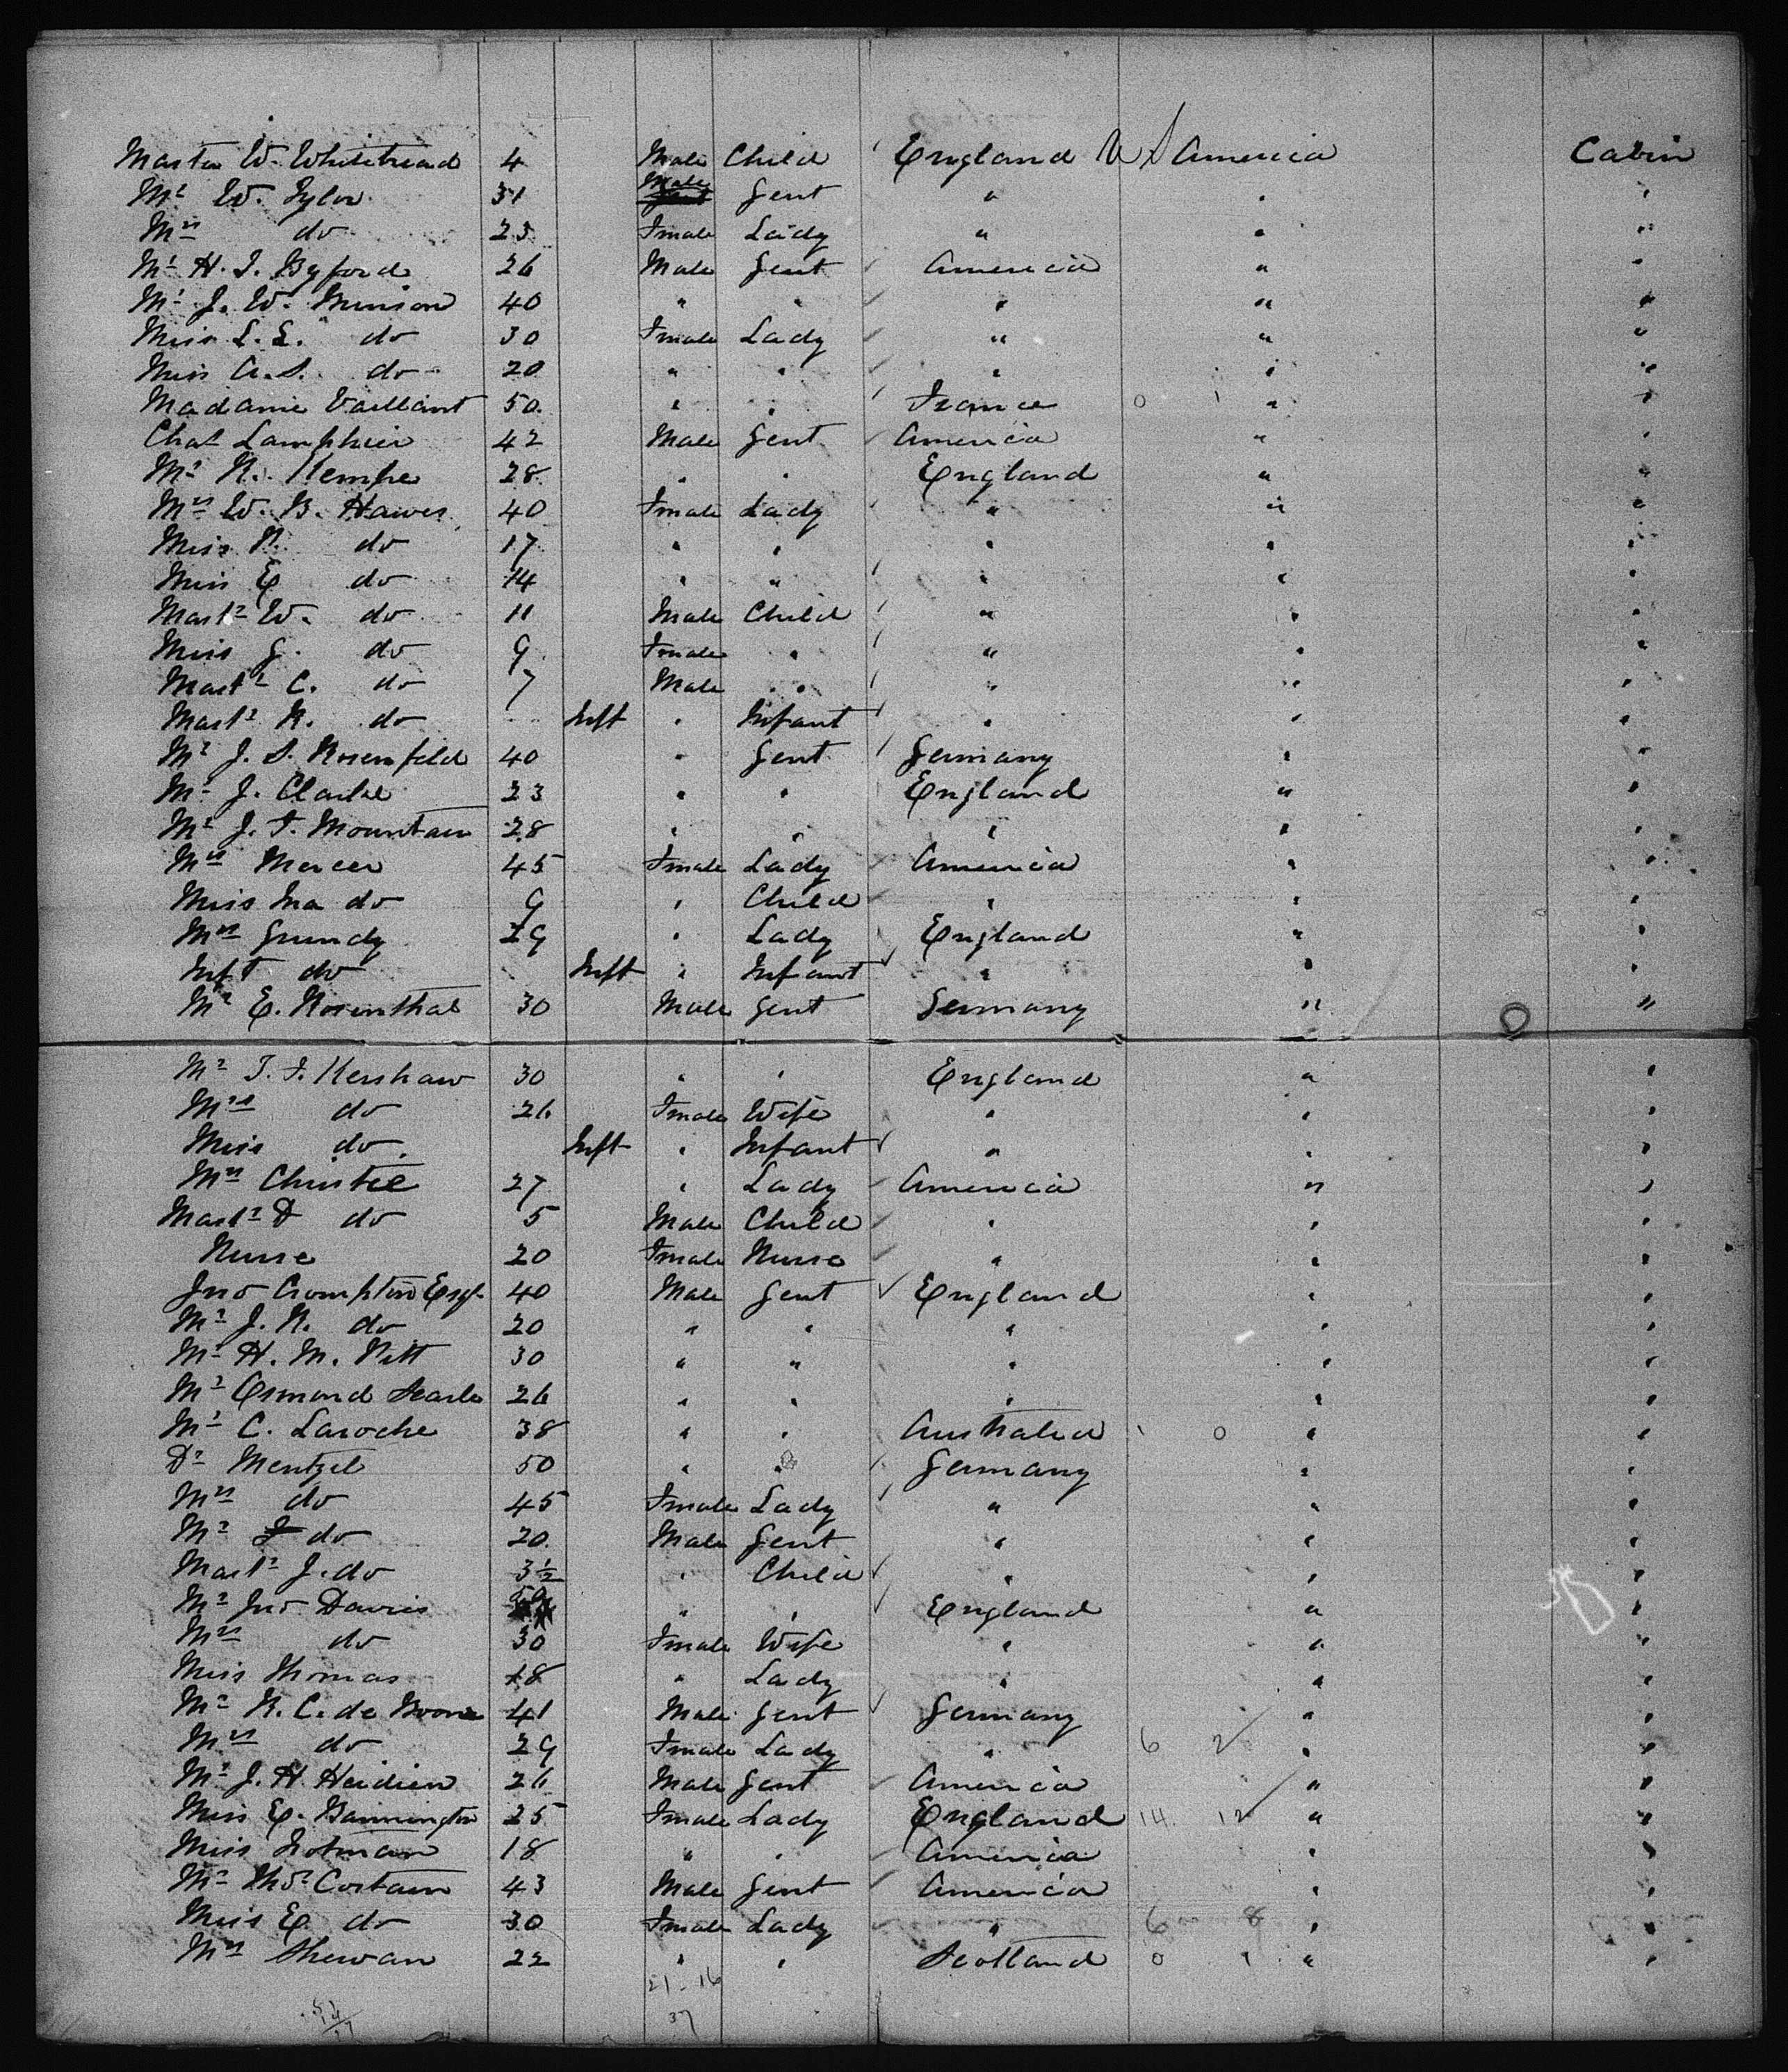 Master W. Whitehead 4 Male Child England U S America Cabin
Mr W. Tylor 31 Male Gent " " "
Mrs do 23 Fmale Lady " " "
Mr H. T. Byford 26 Male Gent America " "
Mr J. W. Munson 40 " " " " "
Miss L. L. do 30 Fmale Lady " " "
Miss A. S. do 20 " " " " "
Madame Vaillant 50 " " France 0 1 " "
Chas Lamphier 42 Male Gent America " "
Mr R. Kempe 28 " " England " "
Mrs W. B. Hawes 40 Fmale Lady " " "
Miss R. do 17 " " " " "
Miss E do 14 " " " " "
Mastr W. do 11 Male Child " " "
Miss G. do 9 Fmale " " " "
Mastr C. do 7 Male " " " "
Mastr R. do Inft " Infant " " "
Mr J. S. Rosenfeld 40 " Gent Germany " "
Mr J. Clarke 23 " " England " "
Mr J. F. Mountain 28 " " " " "
Mrs Mercer 45 Fmale Lady America " "
Miss Ina do 9 " Child " " "
Mrs Grundy 29 " Lady England " "
Inft do Inft " Infant " " "
Mr E. Rosenthal 30 Male Gent Germany " "
Mr T. F. Kershaw 30 " " England " "
Mrs do 26 Fmale Wife " " "
Miss do. Inft " Infant " " "
Mrs Christie 27 " Lady America " "
Mastr D do 5 Male Child " " "
Nurse 20 Fmale Nurse " " "
Jno Crompton Esqr 40 Male Gent England " "
Mr J. R. do 20 " " " " "
Mr H. M. Pitt 30 " " " " "
Mr Osmond Searle 26 " " " " "
Mr C. Laroche 38 " " Australia 1 0 " "
Dr Mentzel 50 " " Germany " "
Mrs do 45 Fmale Lady " " "
Mr do 20 Male Gent " " "
Mastr J. do 3½ " Child " " "
Mr Jno Davies " " England " "
Mrs do 30 Fmale Wife " " "
Miss Thomas 18 " Lady " " "
Mr R. C. de 41 Male Gent Germany " "
Mrs do 29 Fmale Lady " 6 2 " "
Mr J. H. Heidien 26 Male Gent America " "
Miss E. Bannington 25 Fmale Lady England 14 12 " "
Miss Lotman 18 " " America " "
Mr Thos Costain 43 Male Gent America " "
Miss E do 30 Fmale Lady " 6 8 " "
Mrs Shewan 22 " " Scotland 0 1 " "
21 - 16
37